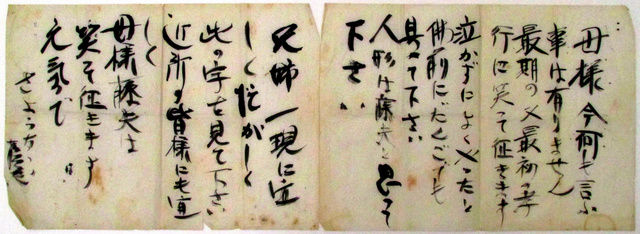 母様今何も言ふ
事は有りません
最期の又最初の孝
行に笑って征きます
泣かずによくやったと
佛前にだんごでも
具へて下さい
人形は藤夫と思って
下さい
兄姉一現に宜
しく忙がしく
此の字を見て下さい
近所の皆様にも宜
しく
母様藤夫は
笑って征きます
元氣で
さようなら